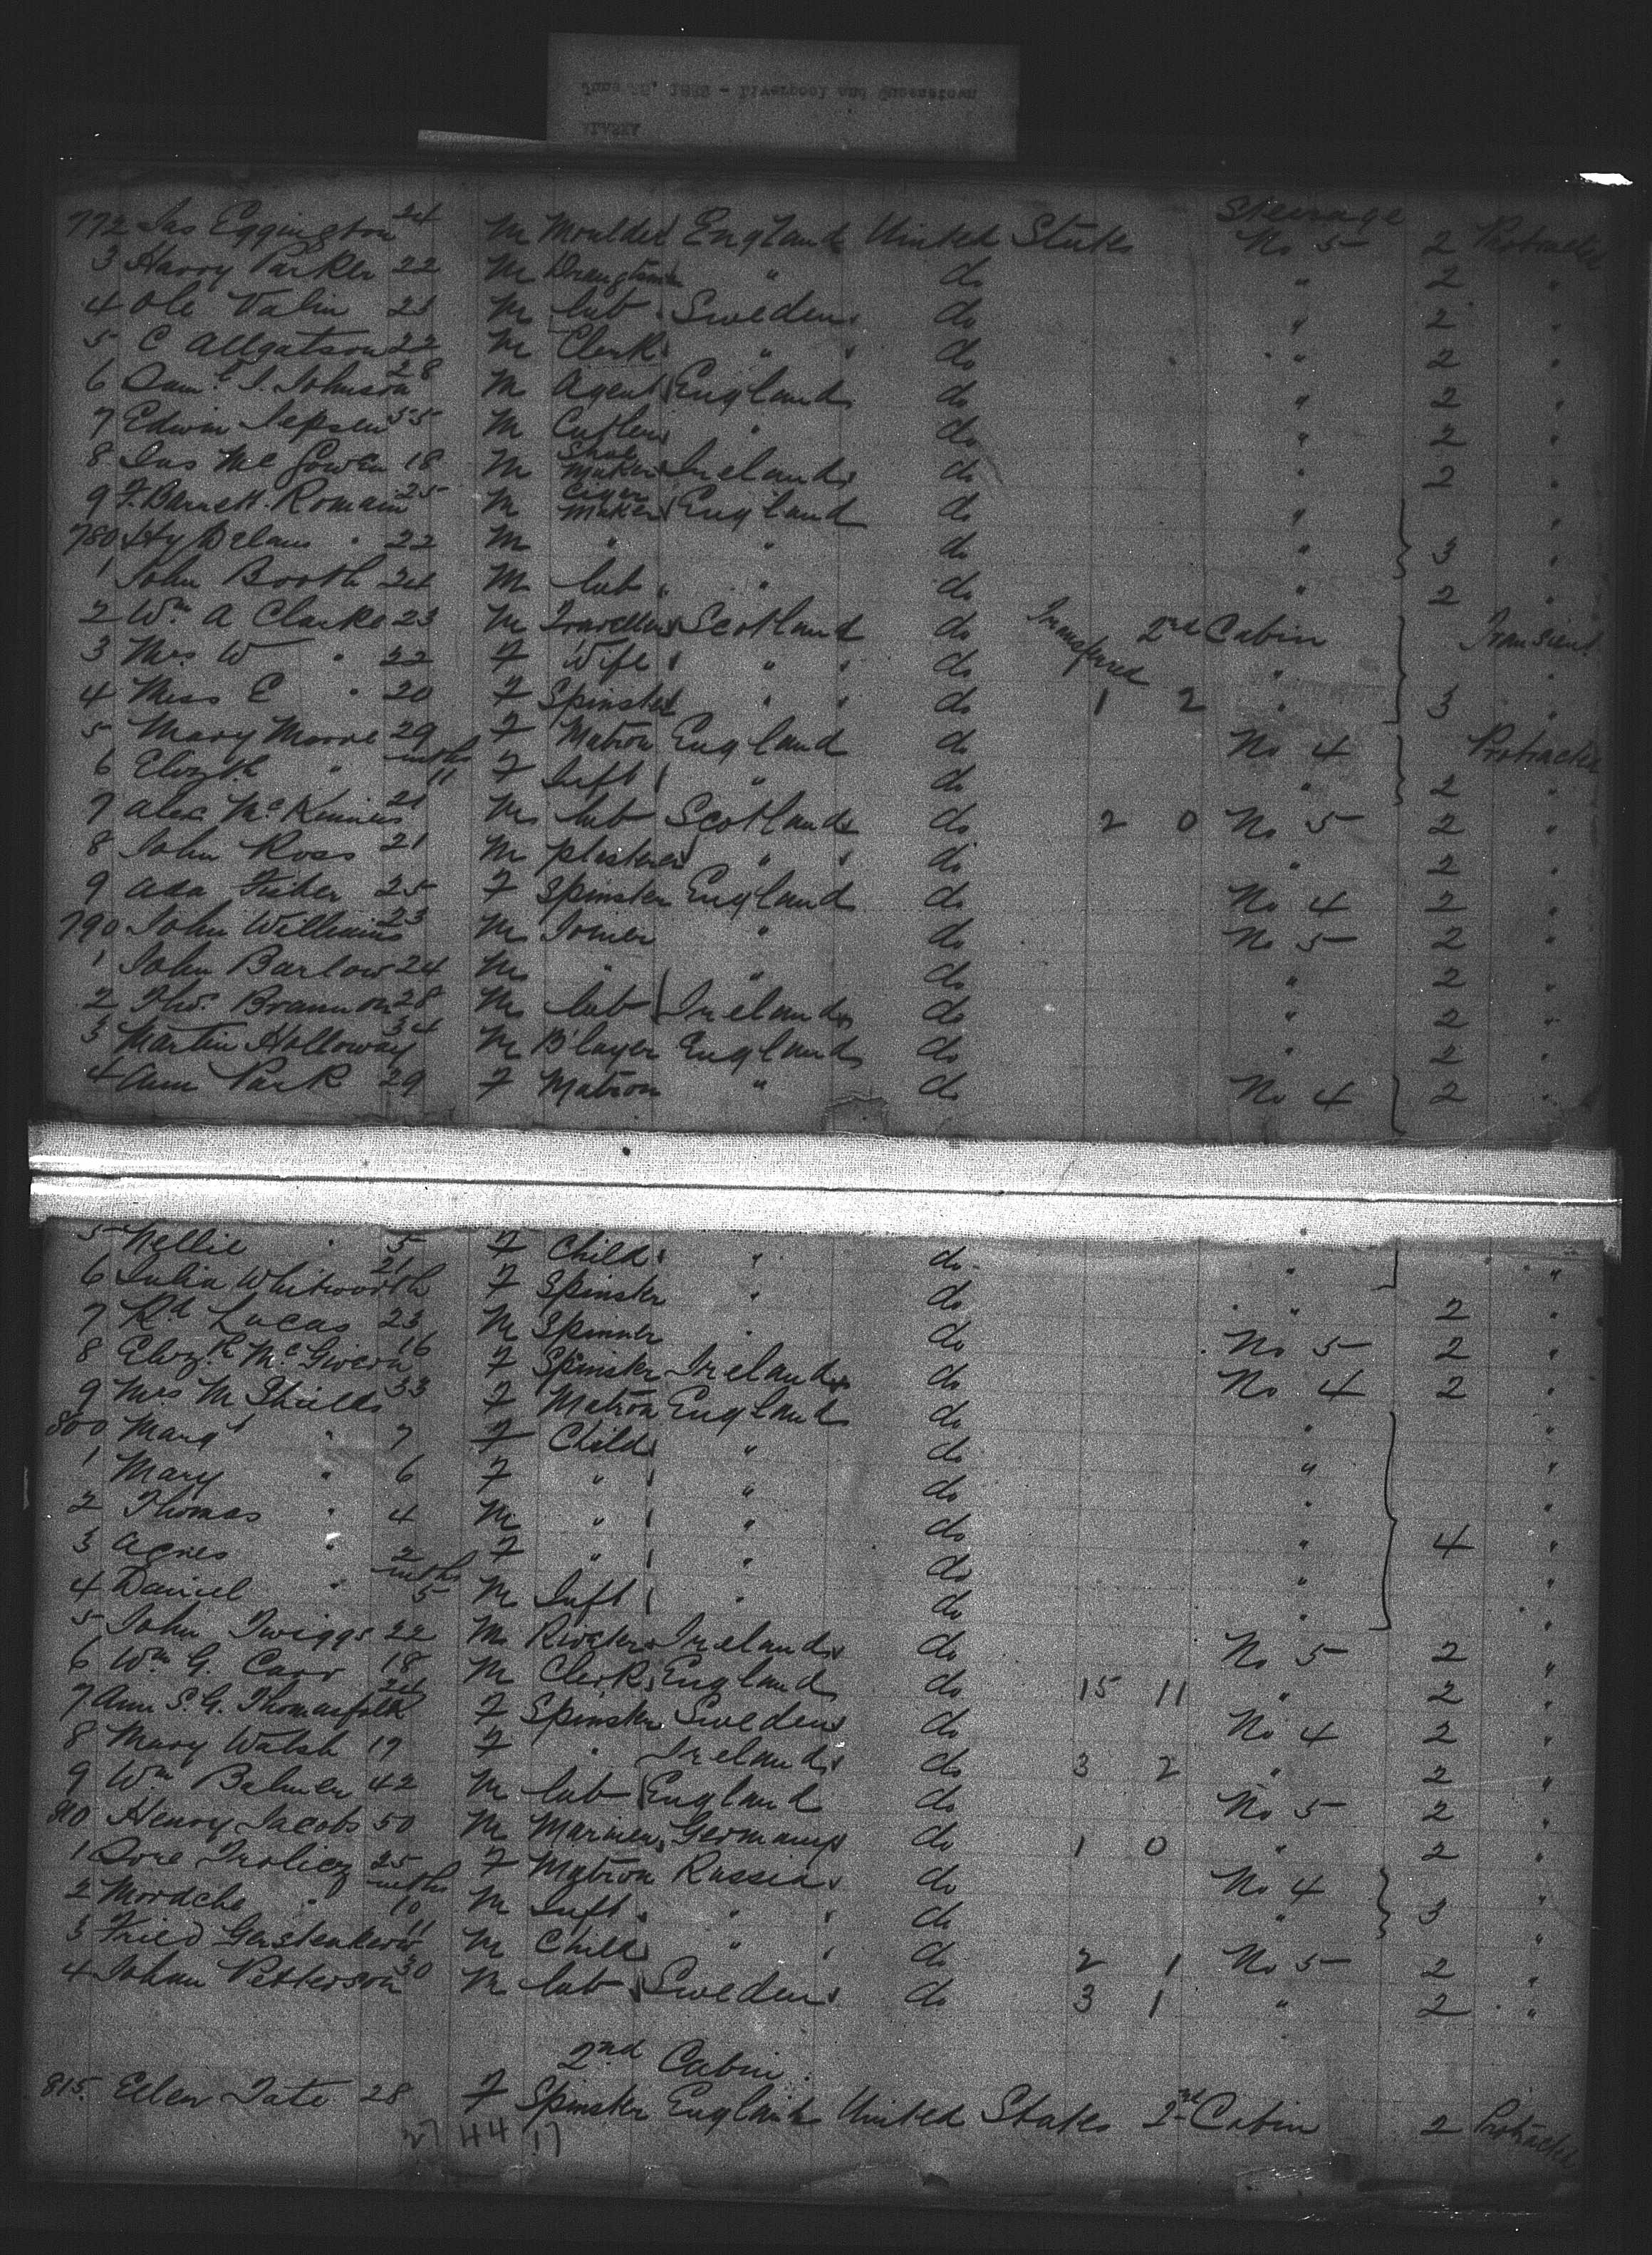 ALASKA
June 25, 1888 - Liverpool and Queenstown
Steerage
772 Jas Eggington 24 M Moulder England United States No 5 2 Protracted
3 Harry Parker 22 M " do " 2 "
4 Ole Valin 21 M Lab Sweden do " 2 "
5 C Allgatson 22 M Clerk " do " 2 "
6 Saml J. Johnson 28 M Agent England do " 2 "
7 Edwin Jepsen 55 M Cutler " do " 2 "
8 Jas Mc Gowen 18 M Shoe Maker Ireland do " 2 "
9 F. Barnett Romain 25 M Cigar Maker England do " "
780 Hy Delaw " 22 M " " do " 3 "
1 John Booth 24 M Lab " do " 2 "
2 Wm A Clarke 23 M Traveller Scotland do Transfered 2nd Cabin Transient
3 Mrs W " 22 F Wife " do " "
4 Miss E " 20 F Spinster " do 1 2 " 3 "
5 Mary Moore 29 F Matron England do No 4 Protracted
6 Elizth " mths 11 F Inft " do " 2 "
7 Alex McKinnies 21 M Lab Scotland do 2 0 No 5 2 "
8 John Ross 21 M Plasterer " do " 2 "
9 Ada Fisher 25 F Spinster England do No 4 2 "
790 John Williams 23 M Joiner " do No 5 2 "
1 John Barlow 24 M " " do " 2 "
2 Thos. Brannon 28 M Lab Ireland do " 2 "
3 Martin Holloway 34 M B'layer England do " 2 "
4 Ann Park 29 F Matron " do No 4 2 "
5 Nellie " 5 F Child " do " "
6 Julia Whitworth 21 F Spinster " do " 2 "
7 Rd Lucas 23 M Spinner " do No 5 2 "
8 Elizth McGivern 16 F Spinster Ireland do No 4 2 "
9 Mrs M Shields 33 F Matron England do " "
800 Margt " 7 F Child " do " "
1 Mary " 6 F " " do " "
2 Thomas " 4 M " " do " 4 "
3 Agnes " 2 F " " do " "
4 Daniel " mths 5 M Inft " do " "
5 John Twiggs 22 M Riveter Ireland do No 5 2 "
6 Wm G. Carr 18 M Clerk England do 15 11 " 2 "
7 Ann S. G. Thomasfolk 24 F Spinster Sweden do No 4 2 "
8 Mary Walsh 19 F " Ireland do 3 2 " 2 "
9 Wm Balmer 42 M Lab England do No 5 2 "
810 Henry Jacobs 50 M Mariner Germany do 1 0 " 2 "
1 Dore Troliez 25 F Matron Russia do No 4 "
2 Mordche " mths 10 M Inft " do " 3 "
3 Fried Gerstenkorn 11 M Child " do 2 1 No 5 2 "
4 Johan Petterson 30 M Lab Sweden do 3 1 " 2 "
2nd Cabin
815 Ellen Tate 28 F Spinster England United States 2nd Cabin 2 Protracted
27 44 17